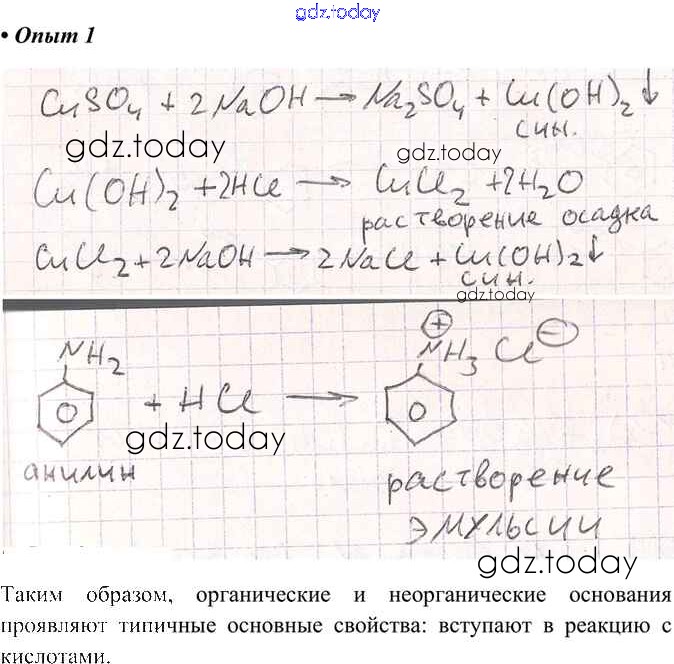 gdz.today
• Опыт 1
CuSO₄ + 2NaOH → Na₂SO₄ + Cu(OH)₂↓
син.
gdz.today gdz.today
Cu(OH)₂ + 2HCl → CuCl₂ + 2H₂O
растворение осадка
CuCl₂ + 2NaOH → 2NaCl + Cu(OH)₂↓
син.
gdz.today
NH₂ + HCl → ⊕NH₃ Cl⊖
gdz.today
анилин растворение
эмульсии
gdz.today
Таким образом, органические и неорганические основания
проявляют типичные основные свойства: вступают в реакцию с
кислотами.